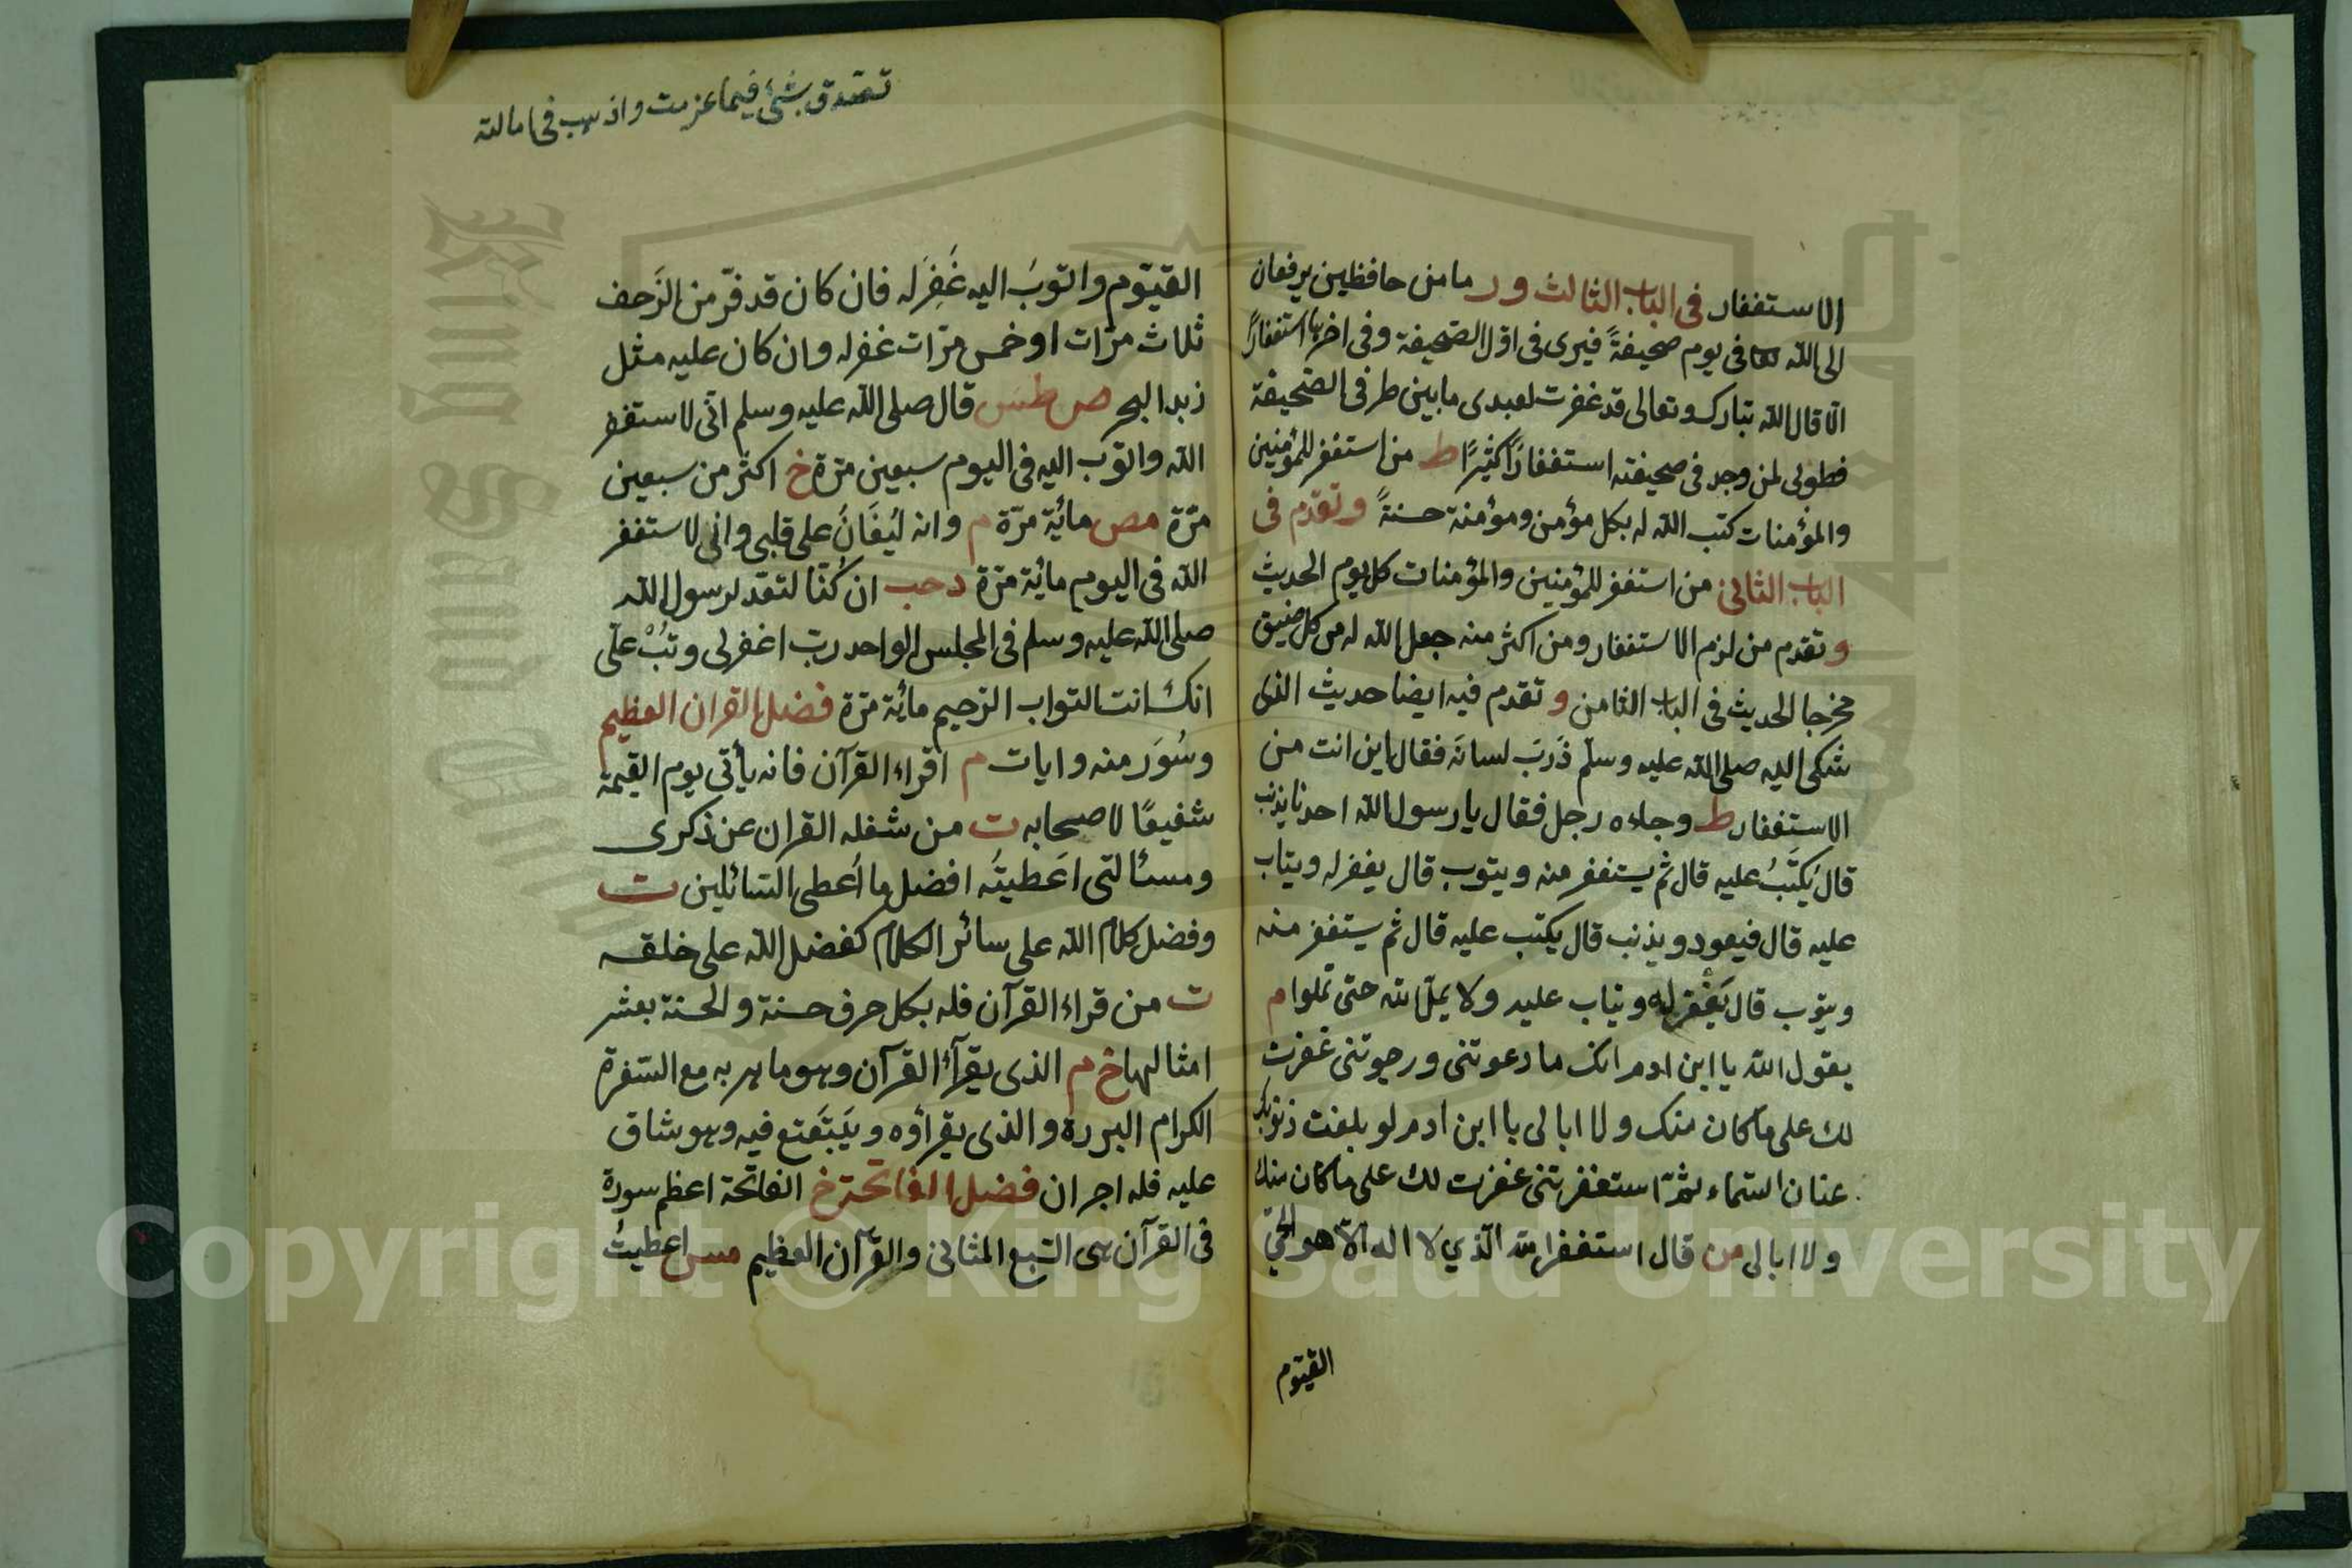 الاستغفار فى الباب الثالث ور ما من حافظين يرفعان
الى الله فى يوم صحيفةً فيرى فى اوّل الصّحيفة وفى اخرها استغفارًا
الّا قال الله تبارك وتعالى قد غفرت لعبدى ما بين طرفى الصّحيفة
فطوبى لمن وجد فى صحيفته استغفارًا كثيرًا ط من استغفر للمؤمنين
والمؤمنات كتب الله له بكل مؤمن ومؤمنة حسنةً وتقدّم فى
الباب الثانى من استغفر للمؤمنين والمؤمنات كل يوم الحديث
وتقدم من لزم الاستغفار ومن اكثر منه جعل الله له من كل ضيق
مخرجا الحديث فى الباب الثامن وتقدم فيه ايضا حديث الذى
شكى اليه صلى الله عليه وسلّم ذَرَبَ لسانه فقال اين انت من
الاستغفار ط وجاءه رجل فقال يا رسول الله احدنا يذنب
قال يُكتَبُ عليه قال ثم يستغفر منه ويتوب قال يغفر له ويتاب
عليه قال فيعود ويذنب قال يكتب عليه قال ثم يستغفر منه
ويتوب قال يُغْفر له ويتاب عليه ولا يملّ الله حتى تملوا م
يقول الله يا ابن ادم انك ما دعوتنى ورجوتنى غفرت
لك على ما كان منك ولا ابالى يا ابن ادم لو بلغت ذنوبك
عنان السّماء ثمّ استغفرتنى غفرت لك على ما كان منك
ولا ابالى من قال استغفر الله الّذي لا اله الّا هو الحيّ
القيّوم
تصدق بشئ فيما عزمت واذهب فى
القيّوم واتوبَ اليه غَفِرَ له فان كان قد فرّ من الزَحف
ثلاث مرّات او خمس مرّات غفر له وان كان عليه مثل
زبد البحر مص طس قال صلى الله عليه وسلم انّى لاستغفر
الله واتوب اليه فى اليوم سبعين مرّة خ اكثر من سبعين
مرّة مص مائة مرّة م وانه ليُغَانُ على قلبى وانى لاستغفر
الله فى اليوم مائة مرّة د حب ان كُنّا لنعدّ لرسول الله
صلى الله عليه وسلم فى المجلس الواحد ربّ اغفر لى وتُبْ علىّ
انك انت التواب الرّحيم مائة مرّة فضل القران العظيم
وسُوَر منه وايات م اقراء القرآن فانه يأتى يوم القيمة
شفيعًا لاصحابه ت من شغله القران عن ذكرى
ومسئالتى اَعطيتُه افضل ما اُعطى السّائلين ت
وفضل كلام الله على سائر الكلام كفضل الله على خلقه
ت من قراء القرآن فله بكل حرف حسنة والحسنة بعشر
امثالها خ م الذى يقرأ القرآن وهو ماهر به مع السّفرة
الكرام البررة والذى يقراؤه ويَتَتَعتع فيه وهو شاق
عليه فله اجران فضل الفاتحة خ الفاتحة اعظم سورة
فى القرآن هى السّبع المثانى والقرآن العظيم مس اعطيتُ
Copyright © King Saud University